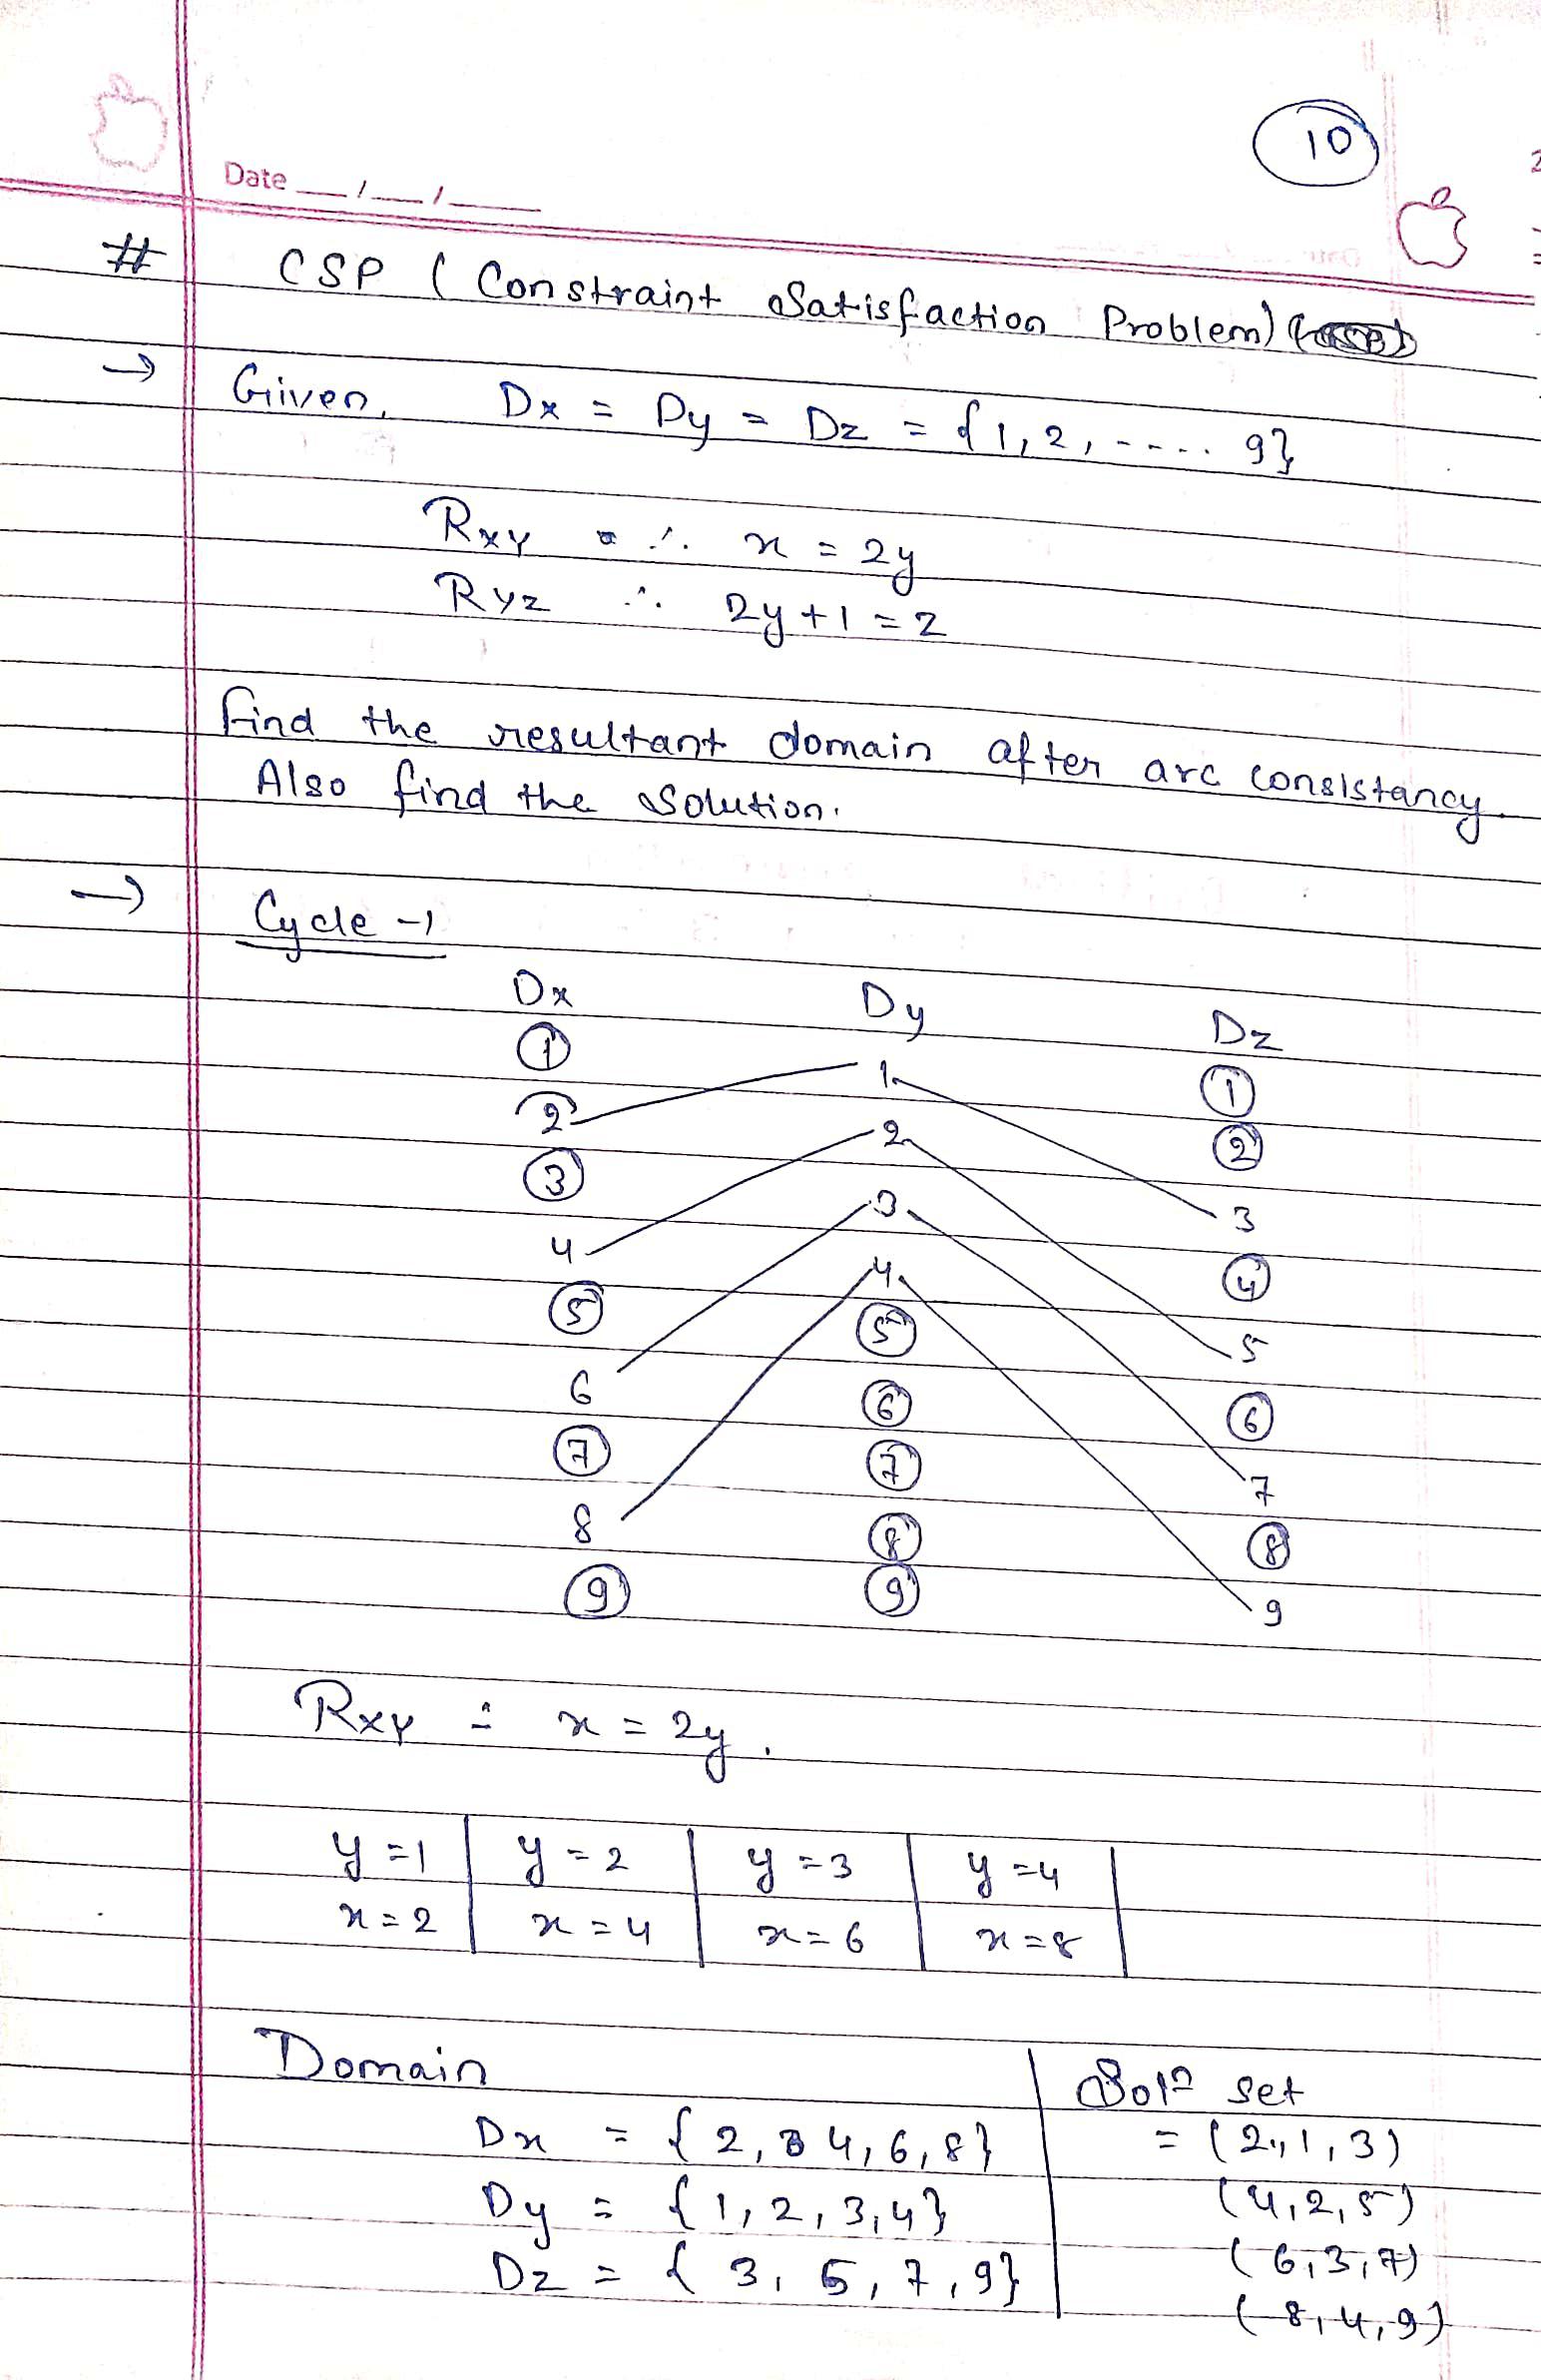 10
Date __/__/____
# CSP ( Constraint Satisfaction Problem)
→ Given, Dx = Dy = Dz = {1, 2, ---- 9}
Rxy ∴ x = 2y
Ryz ∴ 2y + 1 = z
find the resultant domain after arc consistancy.
Also find the solution.
→ Cycle -1
Dx Dy Dz
1 1 1
2 2 2
3 3 3
4 4 4
5 5 5
6 6 6
7 7 7
8 8 8
9 9 9
Rxy : x = 2y.
y = 1 | y = 2 | y = 3 | y = 4
x = 2 | x = 4 | x = 6 | x = 8
Domain | Solⁿ set
Dx = { 2, 4, 6, 8} | = (2, 1, 3)
Dy = { 1, 2, 3, 4} | (4, 2, 5)
Dz = { 3, 5, 7, 9} | ( 6, 3, 7)
( 8, 4, 9)